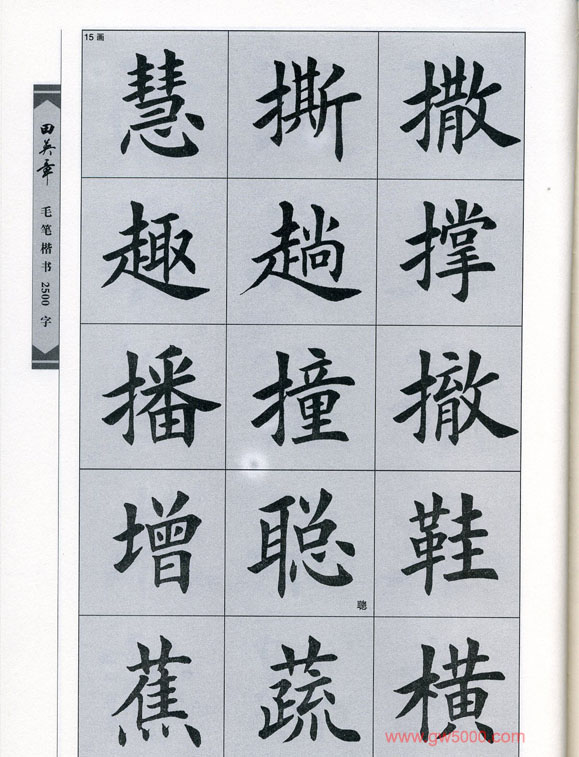 15 画
慧 撕 撒
趣 趟 撑
播 撞 撤
增 聪 鞋
聪
蕉 蔬 横
田英章
毛笔楷书2500字
www.gw5000.com